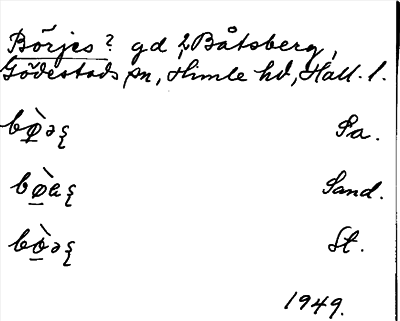 Börjes? gd, Båtsberg,
Gödestads sn, Himle hd, Hall. l.
bø̀əꞩ Sa.
bø̀aꞩ Sand.
bò̱əꞩ St.
1949.